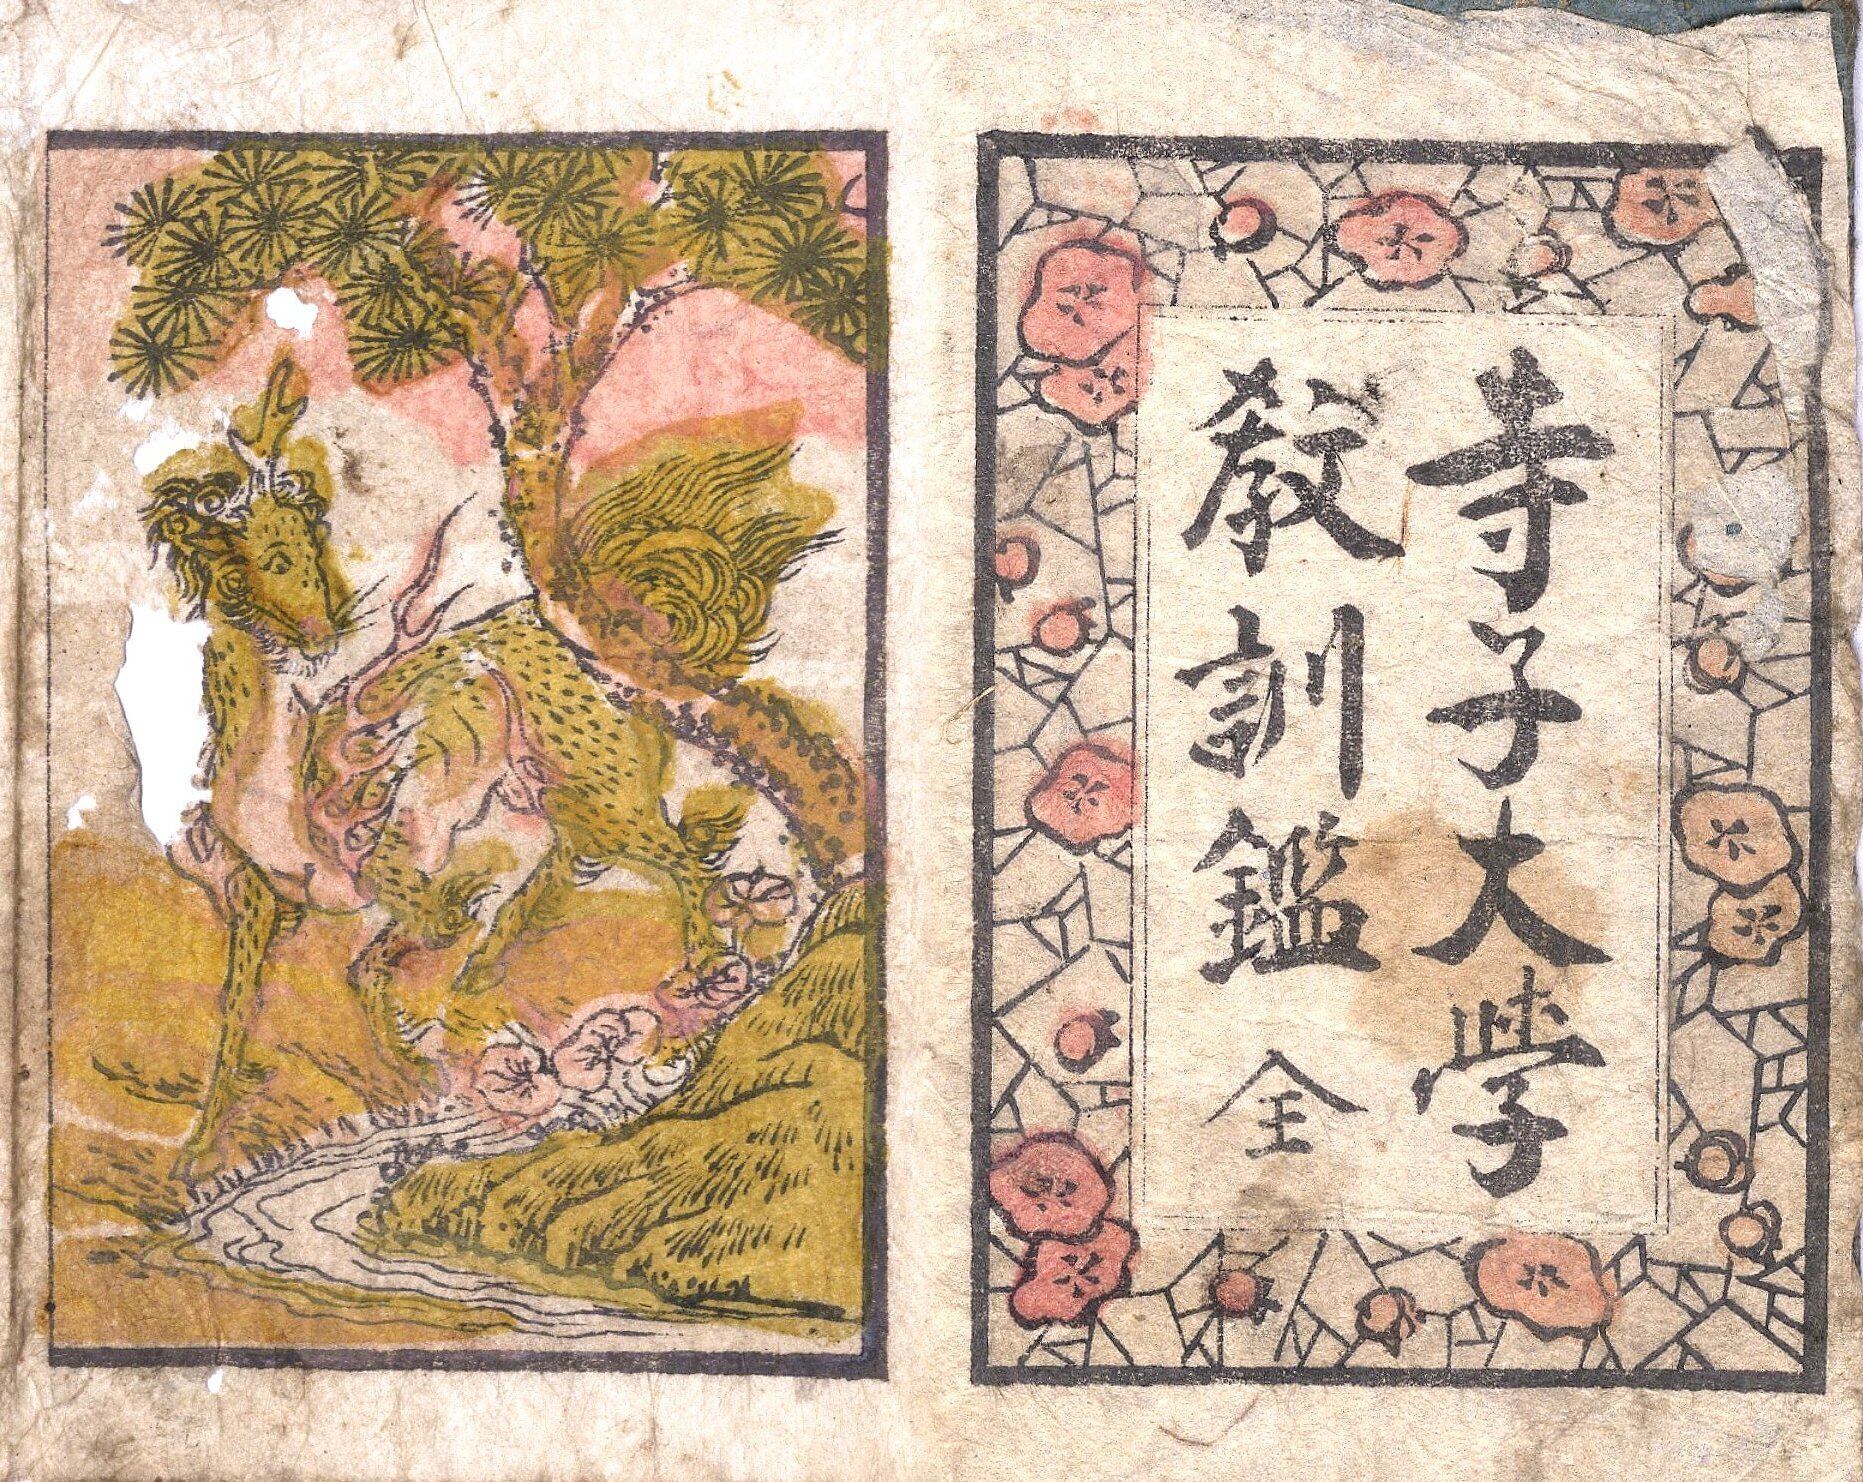 寺子大学
教訓鑑全